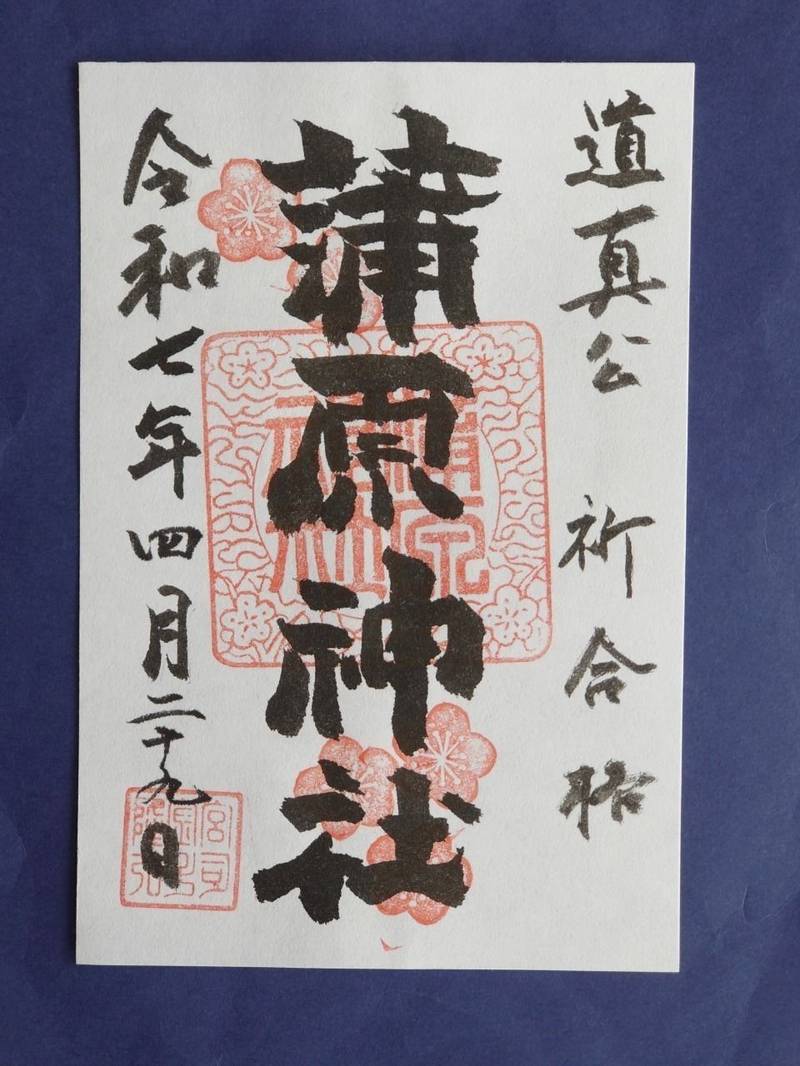 道真公 祈合格
蒲原神社
令和七年四月二十九日